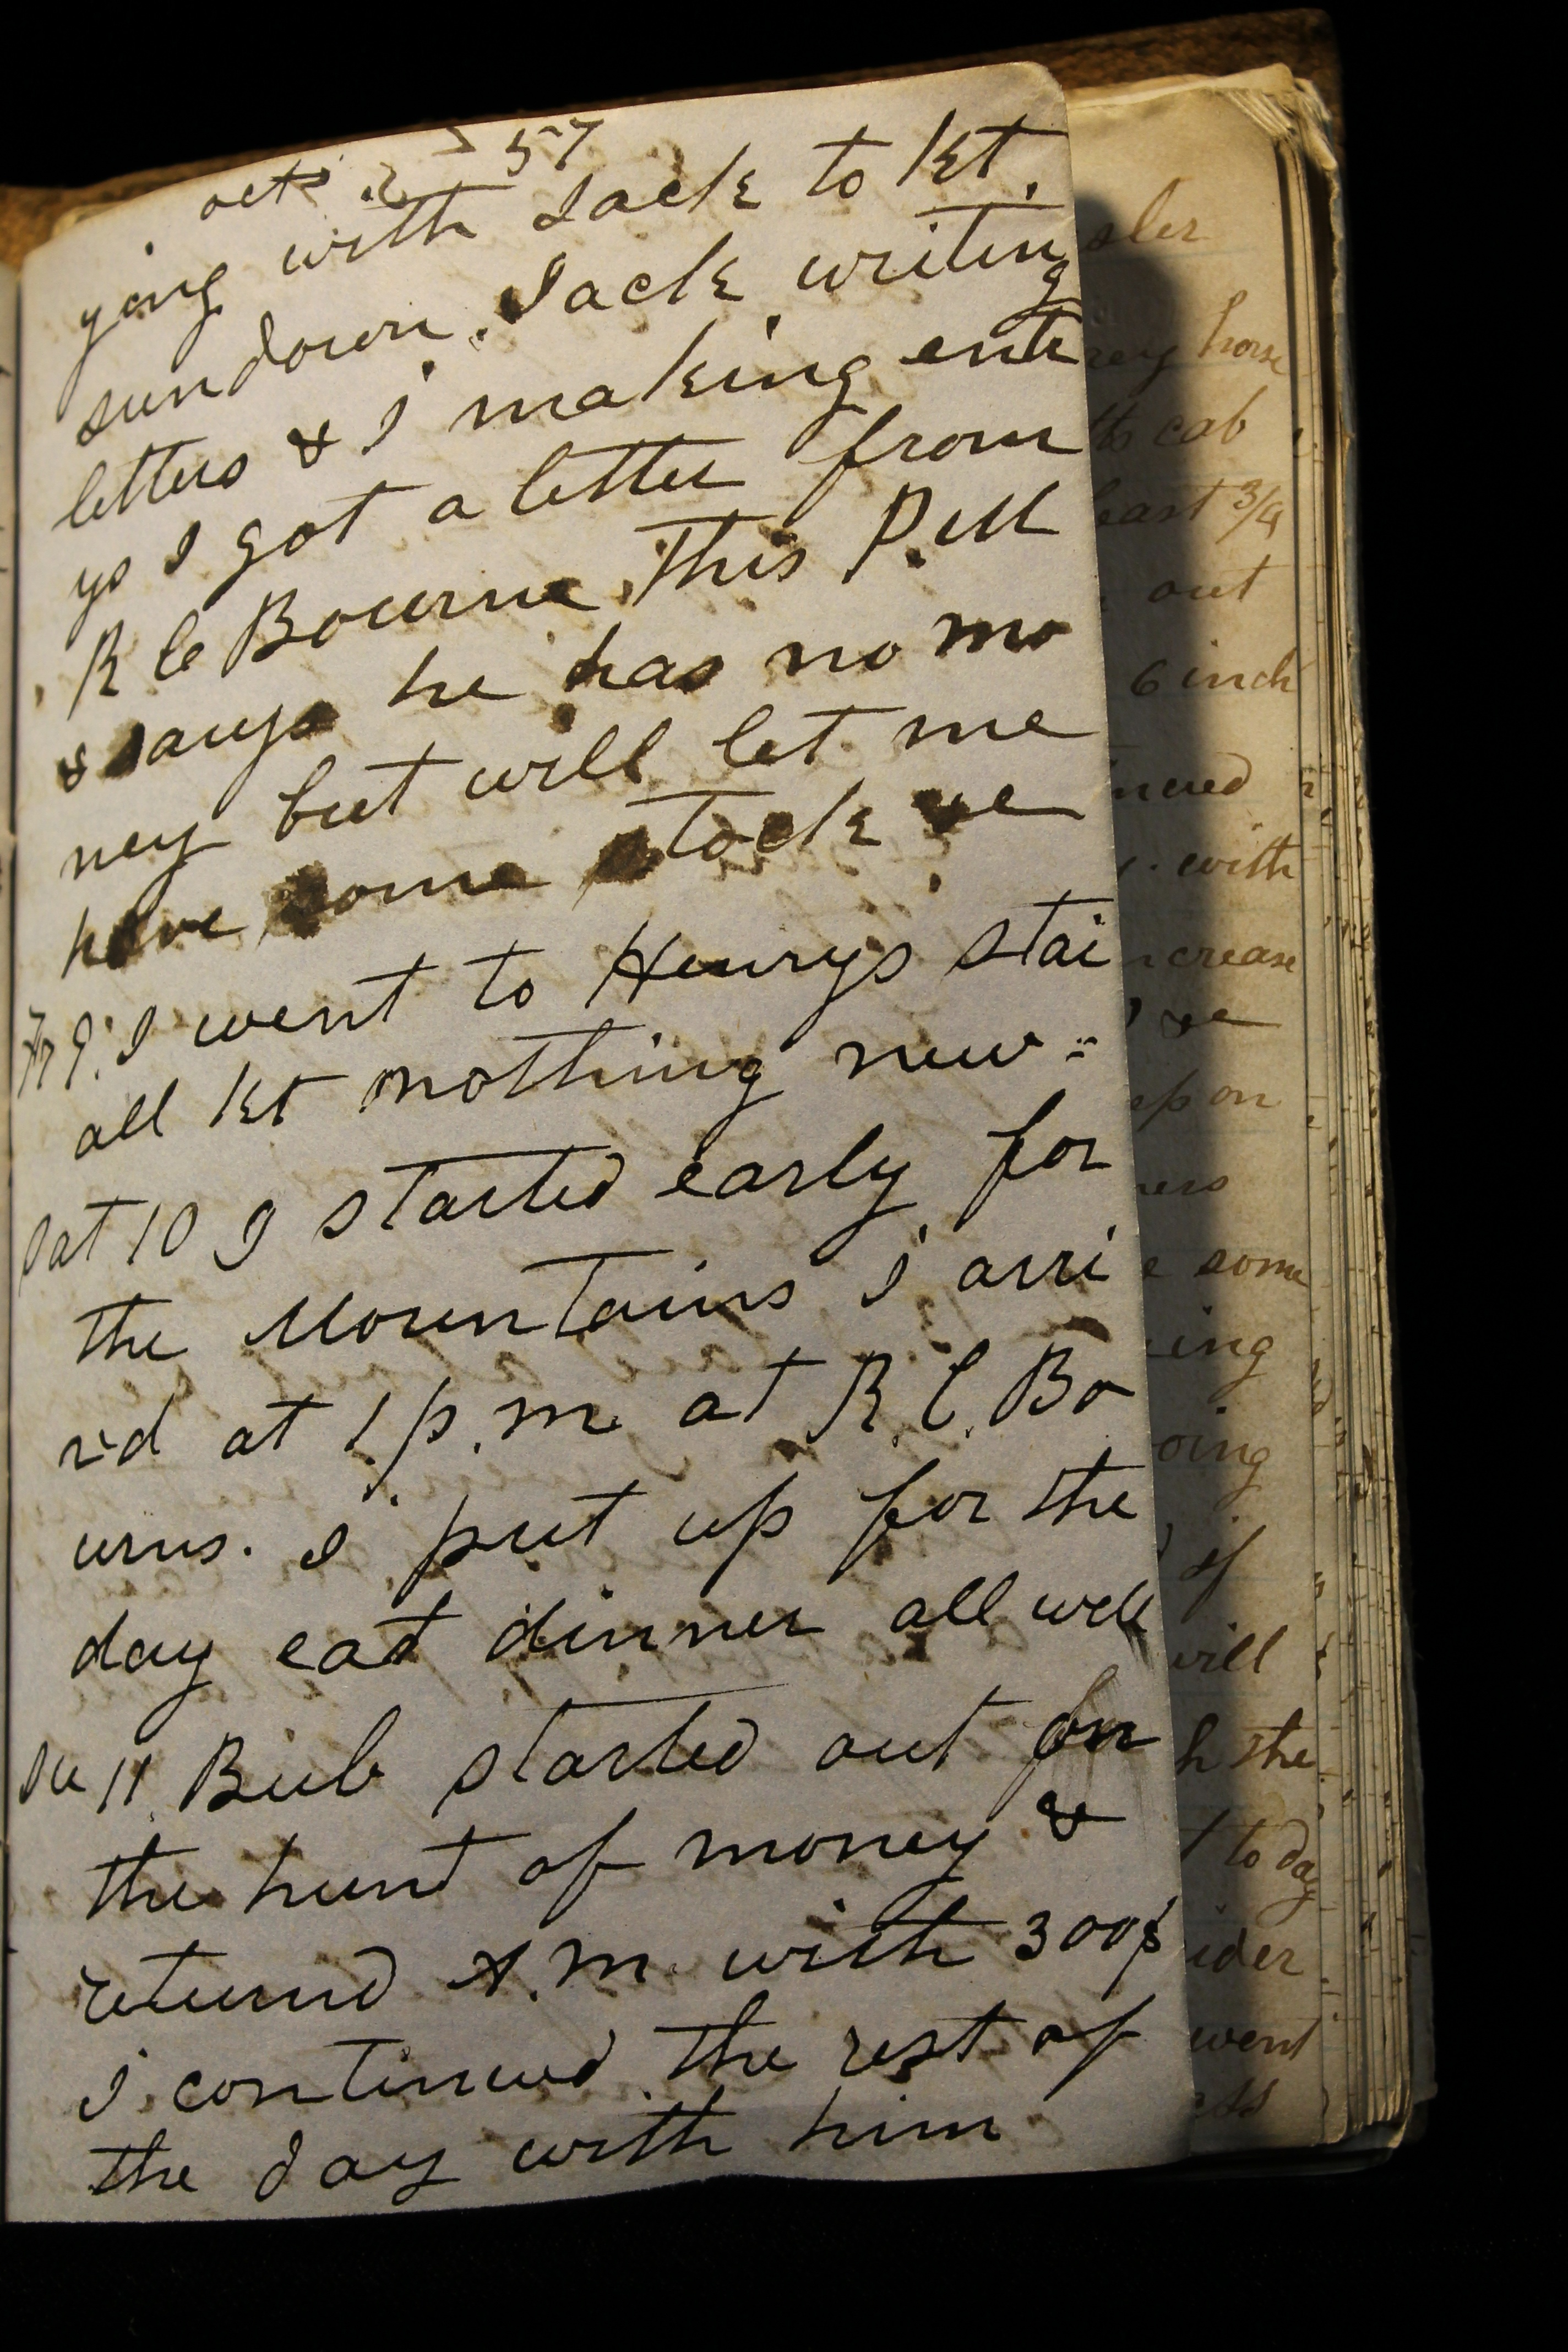 oct 2 57
ying with Jack to kt.
sundown. Jack writing
letters & I making entr
ys I got a letter from
R C Bourne, this P.M
& says he has no mo
ney but will let me
have some stock &c
Fr 9. I went to Henrys stai
all kt nothing new =
Sat 10 I started early for
the Mountains I arri
v-d at 1 p.m at R.C. Bo
urns. I put up for the
day eat dinner all well
Su 11 Bub started out on
the hunt of money &
returnd A.M. with 300$
I continued the rest of
the day with him
sler
horse
cab
east 3/4
out
6 inch
with
crease
&c
on
some
ing
oing
if
will
h the
to day
ider
went
ess